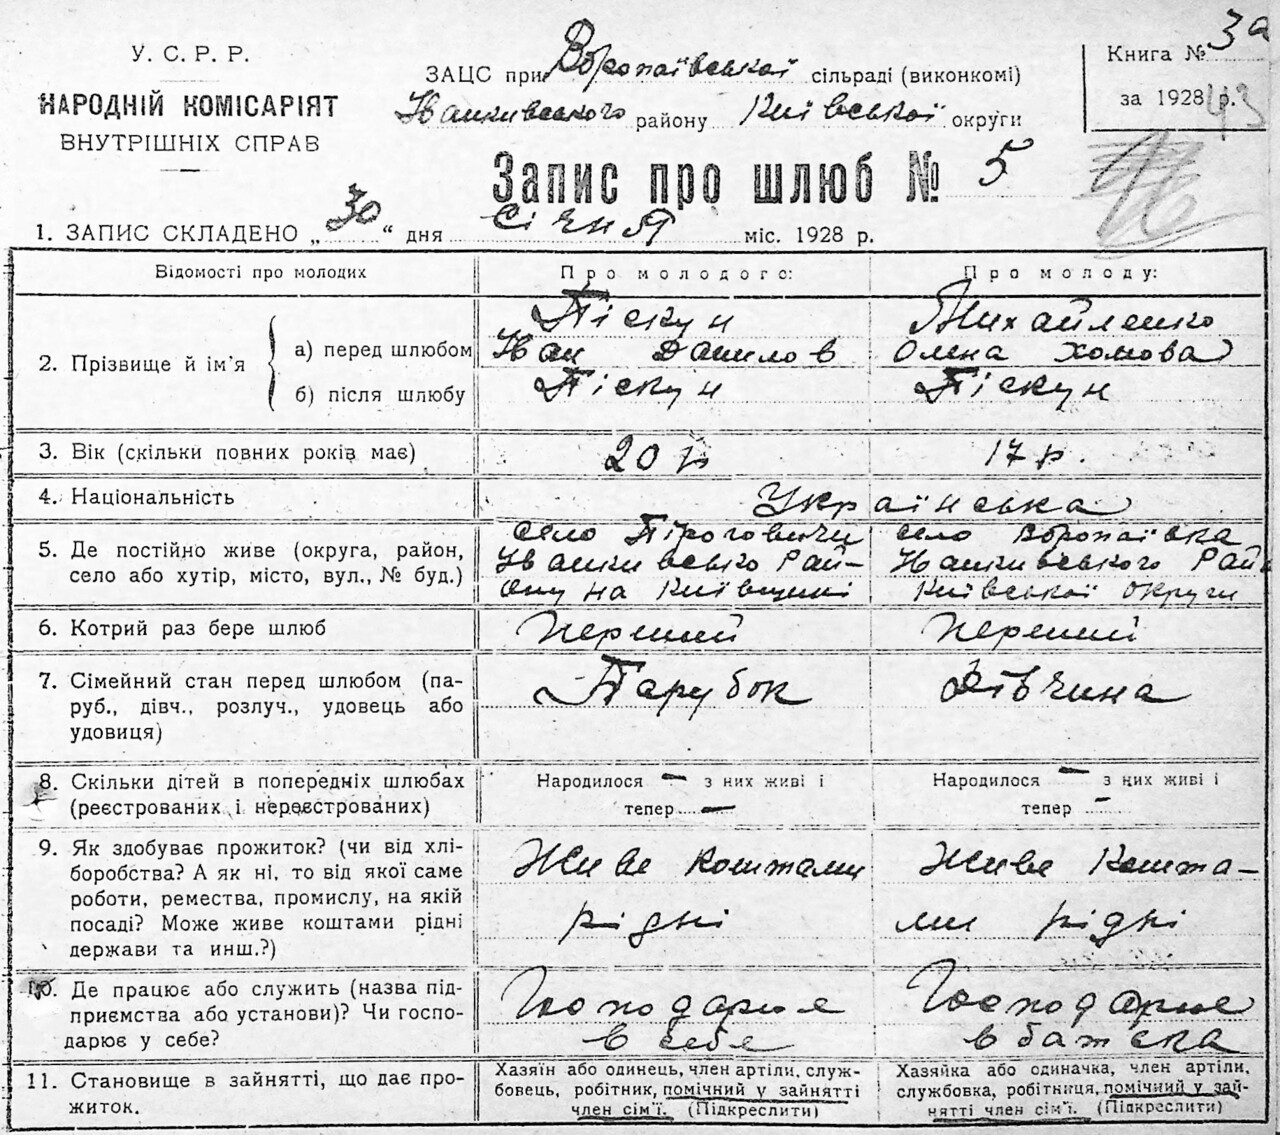 У. С. Р. Р.
НАРОДНІЙ КОМІСАРІЯТ
ВНУТРІШНІХ СПРАВ
ЗАЦС при Воропаївської сільраді (виконкомі)
Іванківського району Київської округи
Книга № 3а
за 1928 р. 43
Запис про шлюб № 5
1. ЗАПИС СКЛАДЕНО „30“ дня січня міс. 1928 р.
Відомості про молодих Про молодого: Про молоду:
2. Прізвище й ім’я
а) перед шлюбом
Піскун
Іван Данилов
Михайленко
Олена Хомова
б) після шлюбу
Піскун
Піскун
3. Вік (скільки повних років має) 20 р 17 р.
4. Національність Українська
5. Де постійно живе (округа, район,
село або хутір, місто, вул., № буд.)
село Піроговичи
Іванкивсько Рай-
ону на Київщині
село Воропаївка
Іванкивського Рай
Київської округи
6. Котрий раз бере шлюб Перший Перший
7. Сімейний стан перед шлюбом (па-
руб., дівч., розлуч., удовець або
удовиця)
Парубок
Дівчина
8. Скільки дітей в попередніх шлюбах
(реєстрованих і нереєстрованих)
Народилося — з них живі і
тепер —
Народилося — з них живі і
тепер -
9. Як здобуває прожиток? (чи від хлі-
боробства? А як ні, то від якої саме
роботи, ремества, промислу, на якій
посаді? Може живе коштами рідні
держави та инш.?)
Живе коштами
рідні
Живе кошта-
ми рідні
10. Де працює або служить (назва під-
приємства або установи)? Чи госпо-
дарює у себе?
Господарює
в себе
Господарює
в батька
11. Становище в зайнятті, що дає про-
житок.
Хазяїн або одинець, член артіли, служ-
бовець, робітник, помічний у зайнятті
член сім’ї. (Підкреслити)
Хазяйка або одиначка, член артіли,
службовка, робітниця, помічний у зай-
нятті член сім’ї. (Підкреслити)